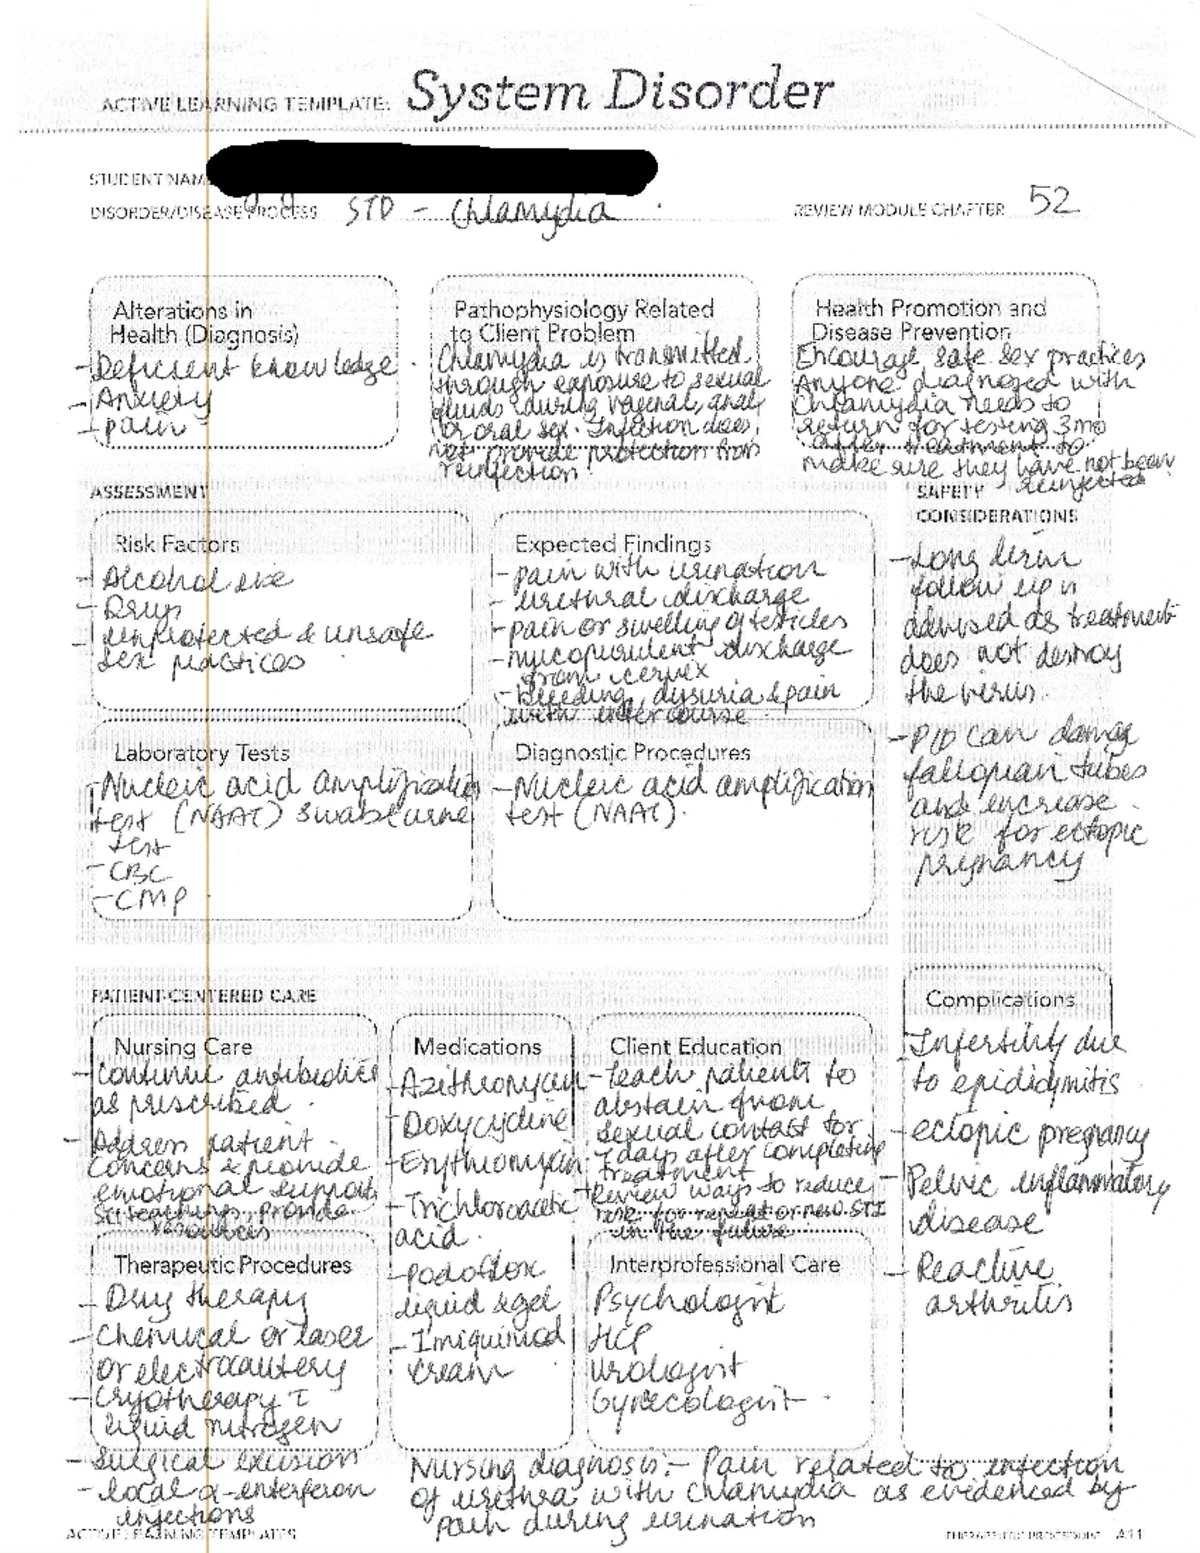 ACTIVE LEARNING TEMPLATE: System Disorder
STUDENT NAME
DISORDER/DISEASE PROCESS STD - Chlamydia
REVIEW MODULE CHAPTER 52
Alterations in
Health (Diagnosis)
- Deficient knowledge
- Anxiety
- pain
Pathophysiology Related
to Client Problem
Chlamydia is transmitted
through exposure to sexual
fluids during vaginal, anal
or oral sex. Infection does
not provide protection from
reinfection.
Health Promotion and
Disease Prevention
Encourage safe sex practices
Anyone diagnosed with
Chlamydia needs to
return for testing 3mo
after treatment to
make sure they have not been
reinfected
ASSESSMENT
SAFETY
CONSIDERATIONS
Risk Factors
- Alcohol use
- Drugs
- unprotected & unsafe
sex practices
Expected Findings
- pain with urination
- urethral discharge
- pain or swelling of testicles
- mucopurulent discharge
from cervix
- bleeding, dysuria & pain
with intercourse
- Long term
follow up is
advised as treatment
does not destroy
the virus.
- PID can damage
fallopian tubes
and increase
risk for ectopic
pregnancy
Laboratory Tests
- Nucleic acid amplification
test (NAAT) swab & urine
test
- CBC
- CMP
Diagnostic Procedures
- Nucleic acid amplification
test (NAAT).
PATIENT-CENTERED CARE
Nursing Care
- Continue antibiotics
as prescribed.
- Address patient
concerns & provide
emotional support,
sti teaching, provide
resources
Medications
- Azithromycin
- Doxycycline
- Erythromycin
- Trichloroacetic
acid.
- podofilox
liquid & gel
- Imiquimod
cream
Client Education
- Teach patients to
abstain from
sexual contact for
7 days after completing
treatment
- Review ways to reduce
risk for repeat or new STI
in the future
Complications
- Infertility due
to epididymitis
- ectopic pregnancy
- Pelvic inflammatory
disease
- Reactive
arthritis
Therapeutic Procedures
- Drug therapy
- Chemical or laser
or electrocautery
- Cryotherapy c̄
liquid nitrogen
- Surgical excision
- local α-interferon
injections
Interprofessional Care
Psychologist
HCP
Urologist
Gynecologist
Nursing diagnosis:- Pain related to infection
of urethra with chlamydia as evidenced by
pain during urination
ACTIVE LEARNING TEMPLATES
THERAPEUTIC PROCEDURE A11